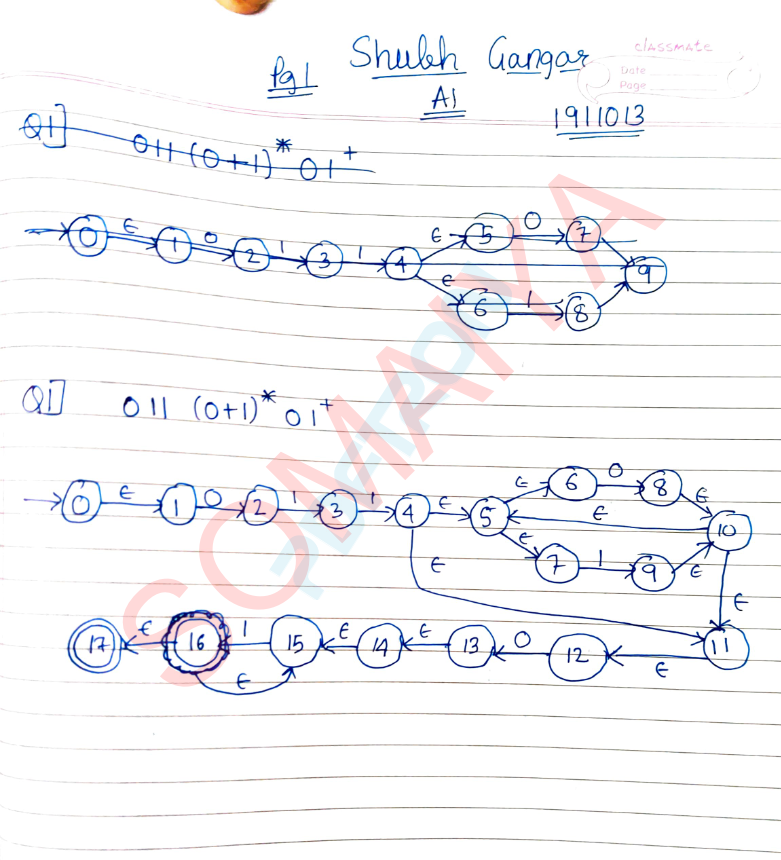 Pg 1 Shubh Gangar
A1
1911013
classmate
Date
Page
Q1] 011 (0+1)* 01+
0 ε 1 0 2 1 3 1 4 ε 5 0 7 9
ε 6 1 8
SOMAIYA
Q1] 011 (0+1)* 01+
0 ε 1 0 2 1 3 1 4 ε 5 ε 6 0 8 ε
ε 10
ε 7 1 9 ε
ε ε
17 ε 16 1 15 ε 14 ε 13 0 12 ε 11
ε